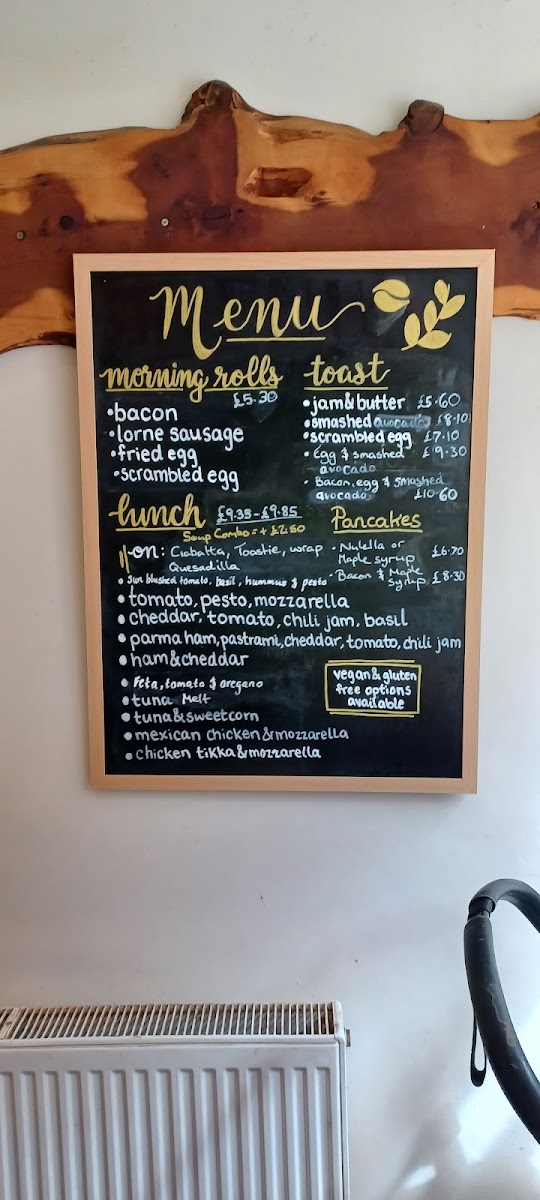 Menu
morning rolls
£5.30
•bacon
•lorne sausage
•fried egg
•scrambled egg
toast
•jam&butter £5.60
•smashed avocado £8.10
•scrambled egg £7.10
• Egg & smashed £9.30
avocado
• Bacon, egg & smashed
avocado £10.60
lunch £9.35-£9.85
Soup Combo = + £2.50
on: Ciabatta, Toastie, wrap
Quesadilla
• Sun blushed tomato, basil, hummus & pesto
• tomato, pesto, mozzarella
• cheddar, tomato, chili jam, basil
• parma ham, pastrami, cheddar, tomato, chili jam
• ham&cheddar
• Feta, tomato & oregano
• tuna Melt
• tuna&sweetcorn
• mexican chicken&mozzarella
• chicken tikka&mozzarella
Pancakes
• Nutella or
Maple syrup £6.70
• Bacon & Maple
syrup £8.30
vegan&gluten
free options
available